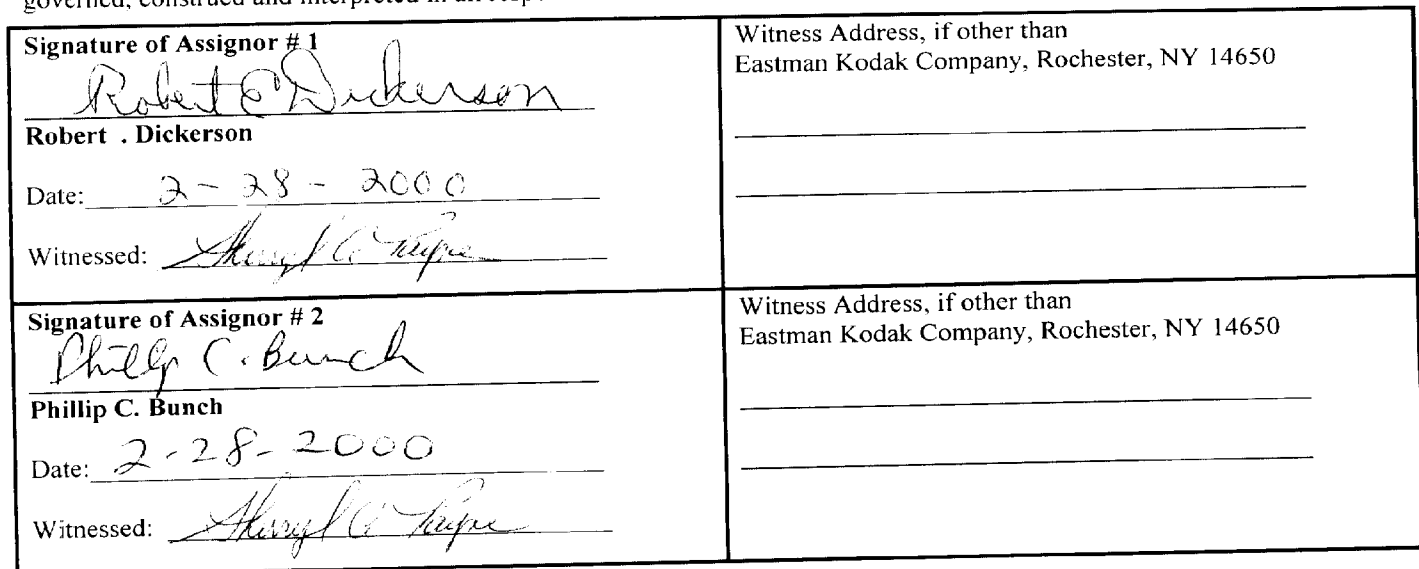 governed, construed and interpreted in all
Signature of Assignor # 1
Robert E Dickerson
Robert . Dickerson
Date: 2-28-2000
Witnessed: Sherryl A
Witness Address, if other than
Eastman Kodak Company, Rochester, NY 14650
Signature of Assignor # 2
Phillip C. Bunch
Phillip C. Bunch
Date: 2-28-2000
Witnessed: Sherryl A
Witness Address, if other than
Eastman Kodak Company, Rochester, NY 14650